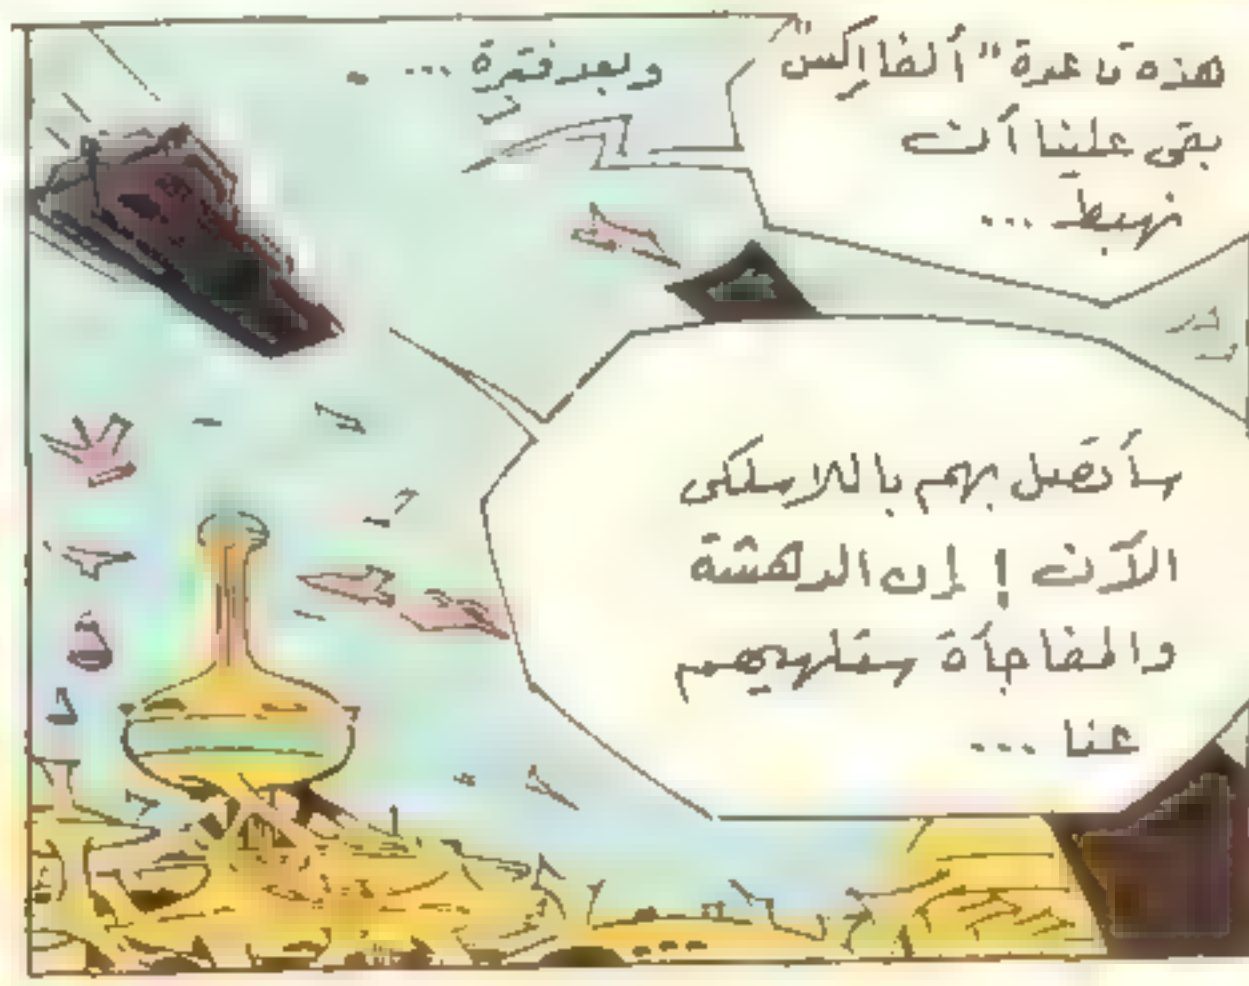 وبعد فترة ...
هذه قاعدة "ألفا إكس"
بقى علينا أن
نهبط ...
سأتصل بهم باللاسلكى
الآن ! إن الدهشة
والمفاجأة ستلهيهم
عنا ...